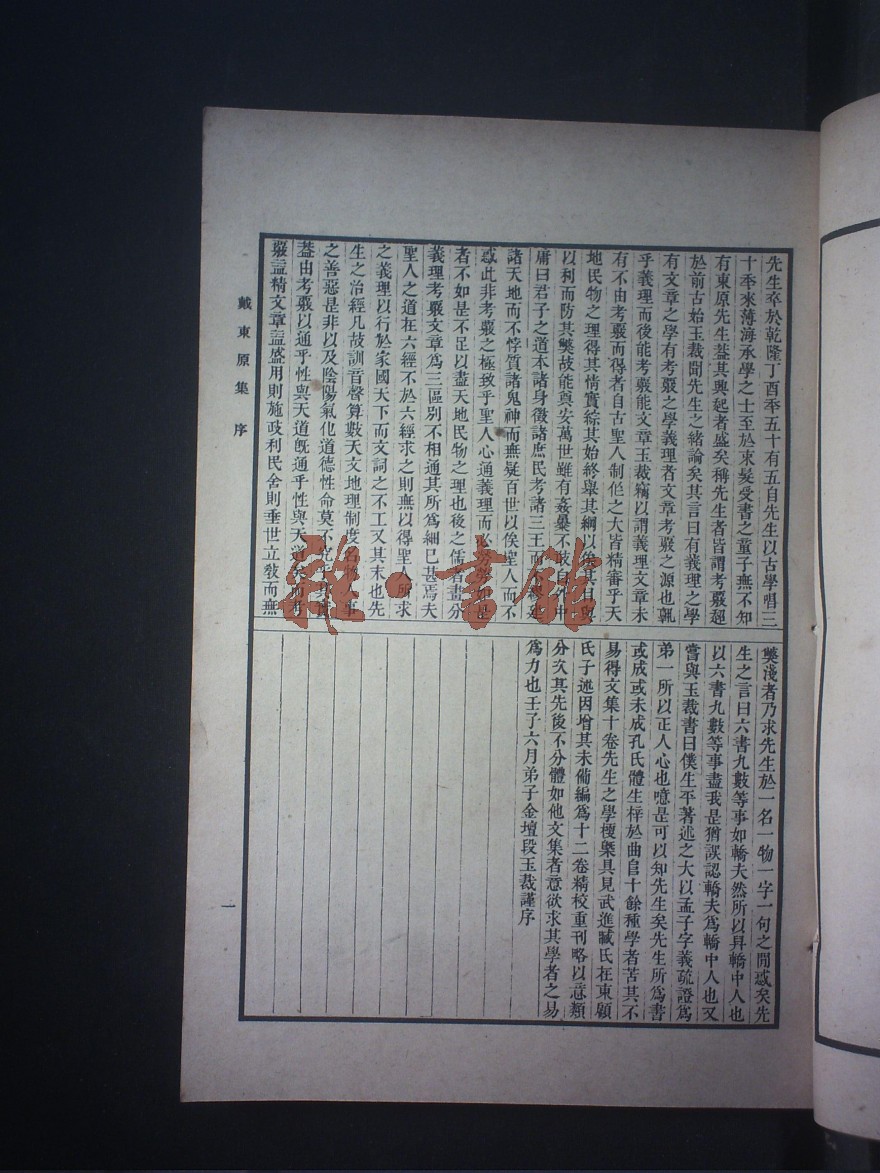 先生卒於乾隆丁酉秊五十有五自先生以古學唱三
十秊來薄海承學之士至於束髮受書之童子無不知
有東原先生葢其興起者盛矣稱先生者皆謂考覈超
於前古始玉裁聞先生之緒論矣其言曰有義理之學
有文章之學有考覈之學義理者文章考覈之源也孰
乎義理而後能考覈能文章玉裁竊以謂義理文章未
有不由考覈而得者自古聖人制作之大皆精審乎天
地民物之理得其情實綜其始終舉其綱以俟其目與
以利而防其獘故能奠安萬世雖有姦暴不敢自外中
庸曰君子之道本諸身徵諸庶民考諸三王而不繆建
諸天地而不悖質諸鬼神而無疑百世以俟聖人而不
惑此非考覈之極致乎聖人心通義理而必勞勞如是
者不如是不足以盡天地民物之理也後之儒者畫分
義理考覈文章爲三區別不相通其所爲細已甚焉夫
聖人之道在六經不於六經求之則無以得聖人所求
之義理以行於家國天下而文詞之不工又其末也先
生之治經凡故訓音聲算數天文地理制度名物人事
之善惡是非以及陰陽氣化道德性命莫不究乎其實
葢由考覈以通乎性與天道旣通乎性與天道矣而考
覈益精文章益盛用則施政利民舍則垂世立敎而無
獘淺者乃求先生於一名一物一字一句之閒惑矣先
生之言曰六書九數等事如轎夫然所以舁轎中人也
以六書九數等事盡我是猶誤認轎夫爲轎中人也又
嘗與玉裁書曰僕生平著述之大以孟子字義疏證爲
弟一所以正人心也噫是可以知先生矣先生所爲書
或成或未成孔氏體生梓於曲阜十餘種學者苦其不
易得文集十卷先生之學梗槩具見武進臧氏在東顧
氏子述因增其未備編爲十二卷精校重刊略以意類
分次其先後不分體如他文集者意欲求其學者之易
爲力也壬子六月弟子金壇段玉裁謹序
戴東原集 序
一